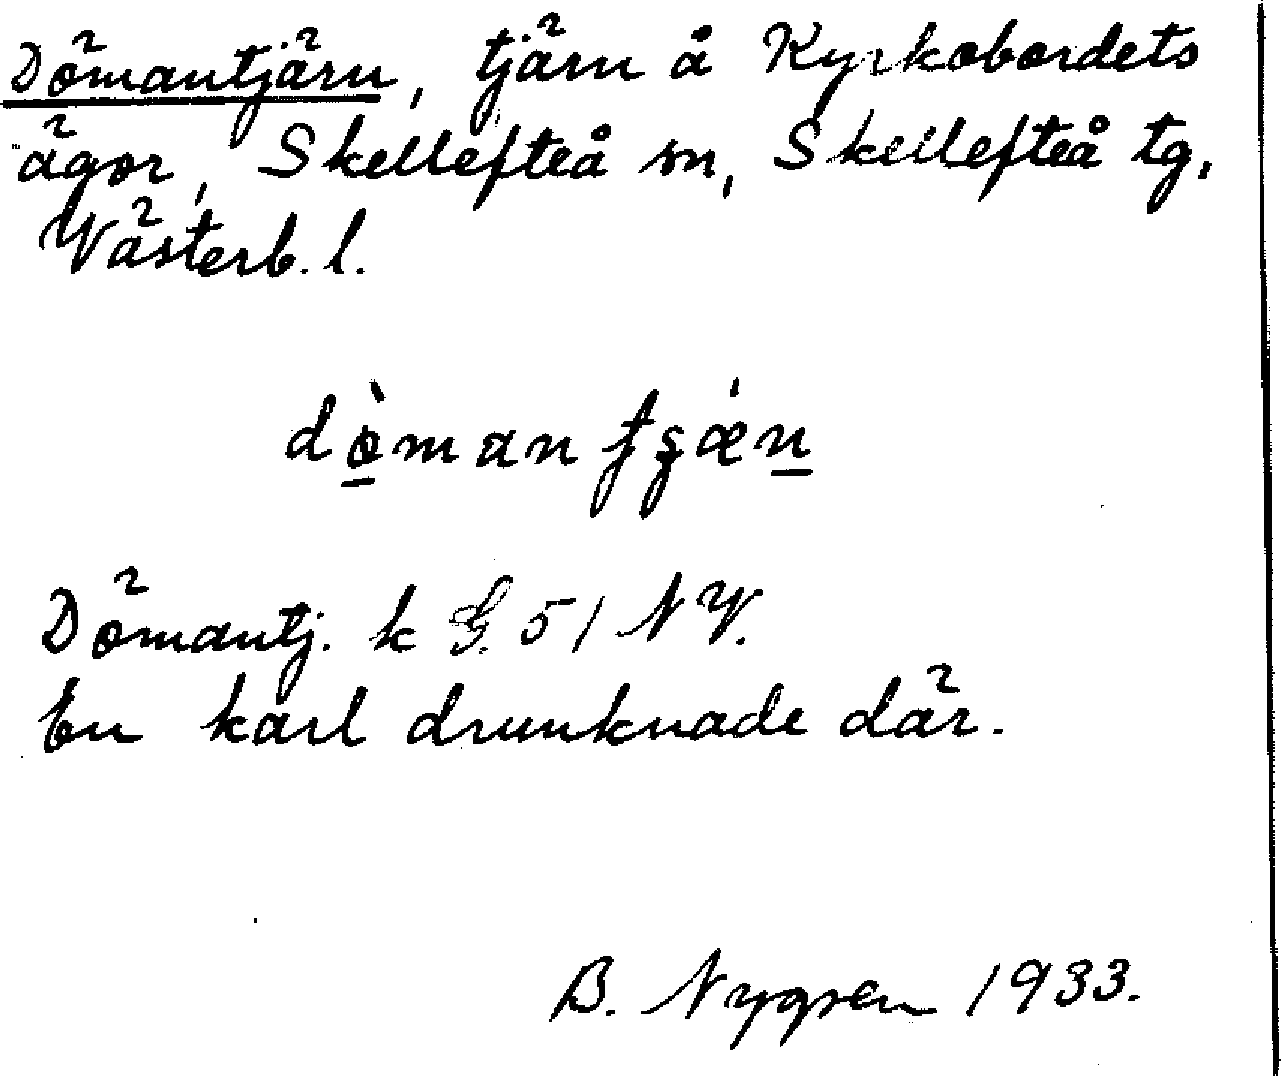 Dömantjärn, tjärn å Kyrkobordets
ägor, Skellefteå sn, Skellefteå tg,
Västerb. l.
Dömantj. k G. 51 NV.
En karl drunknade där.
B. Nygren 1933.